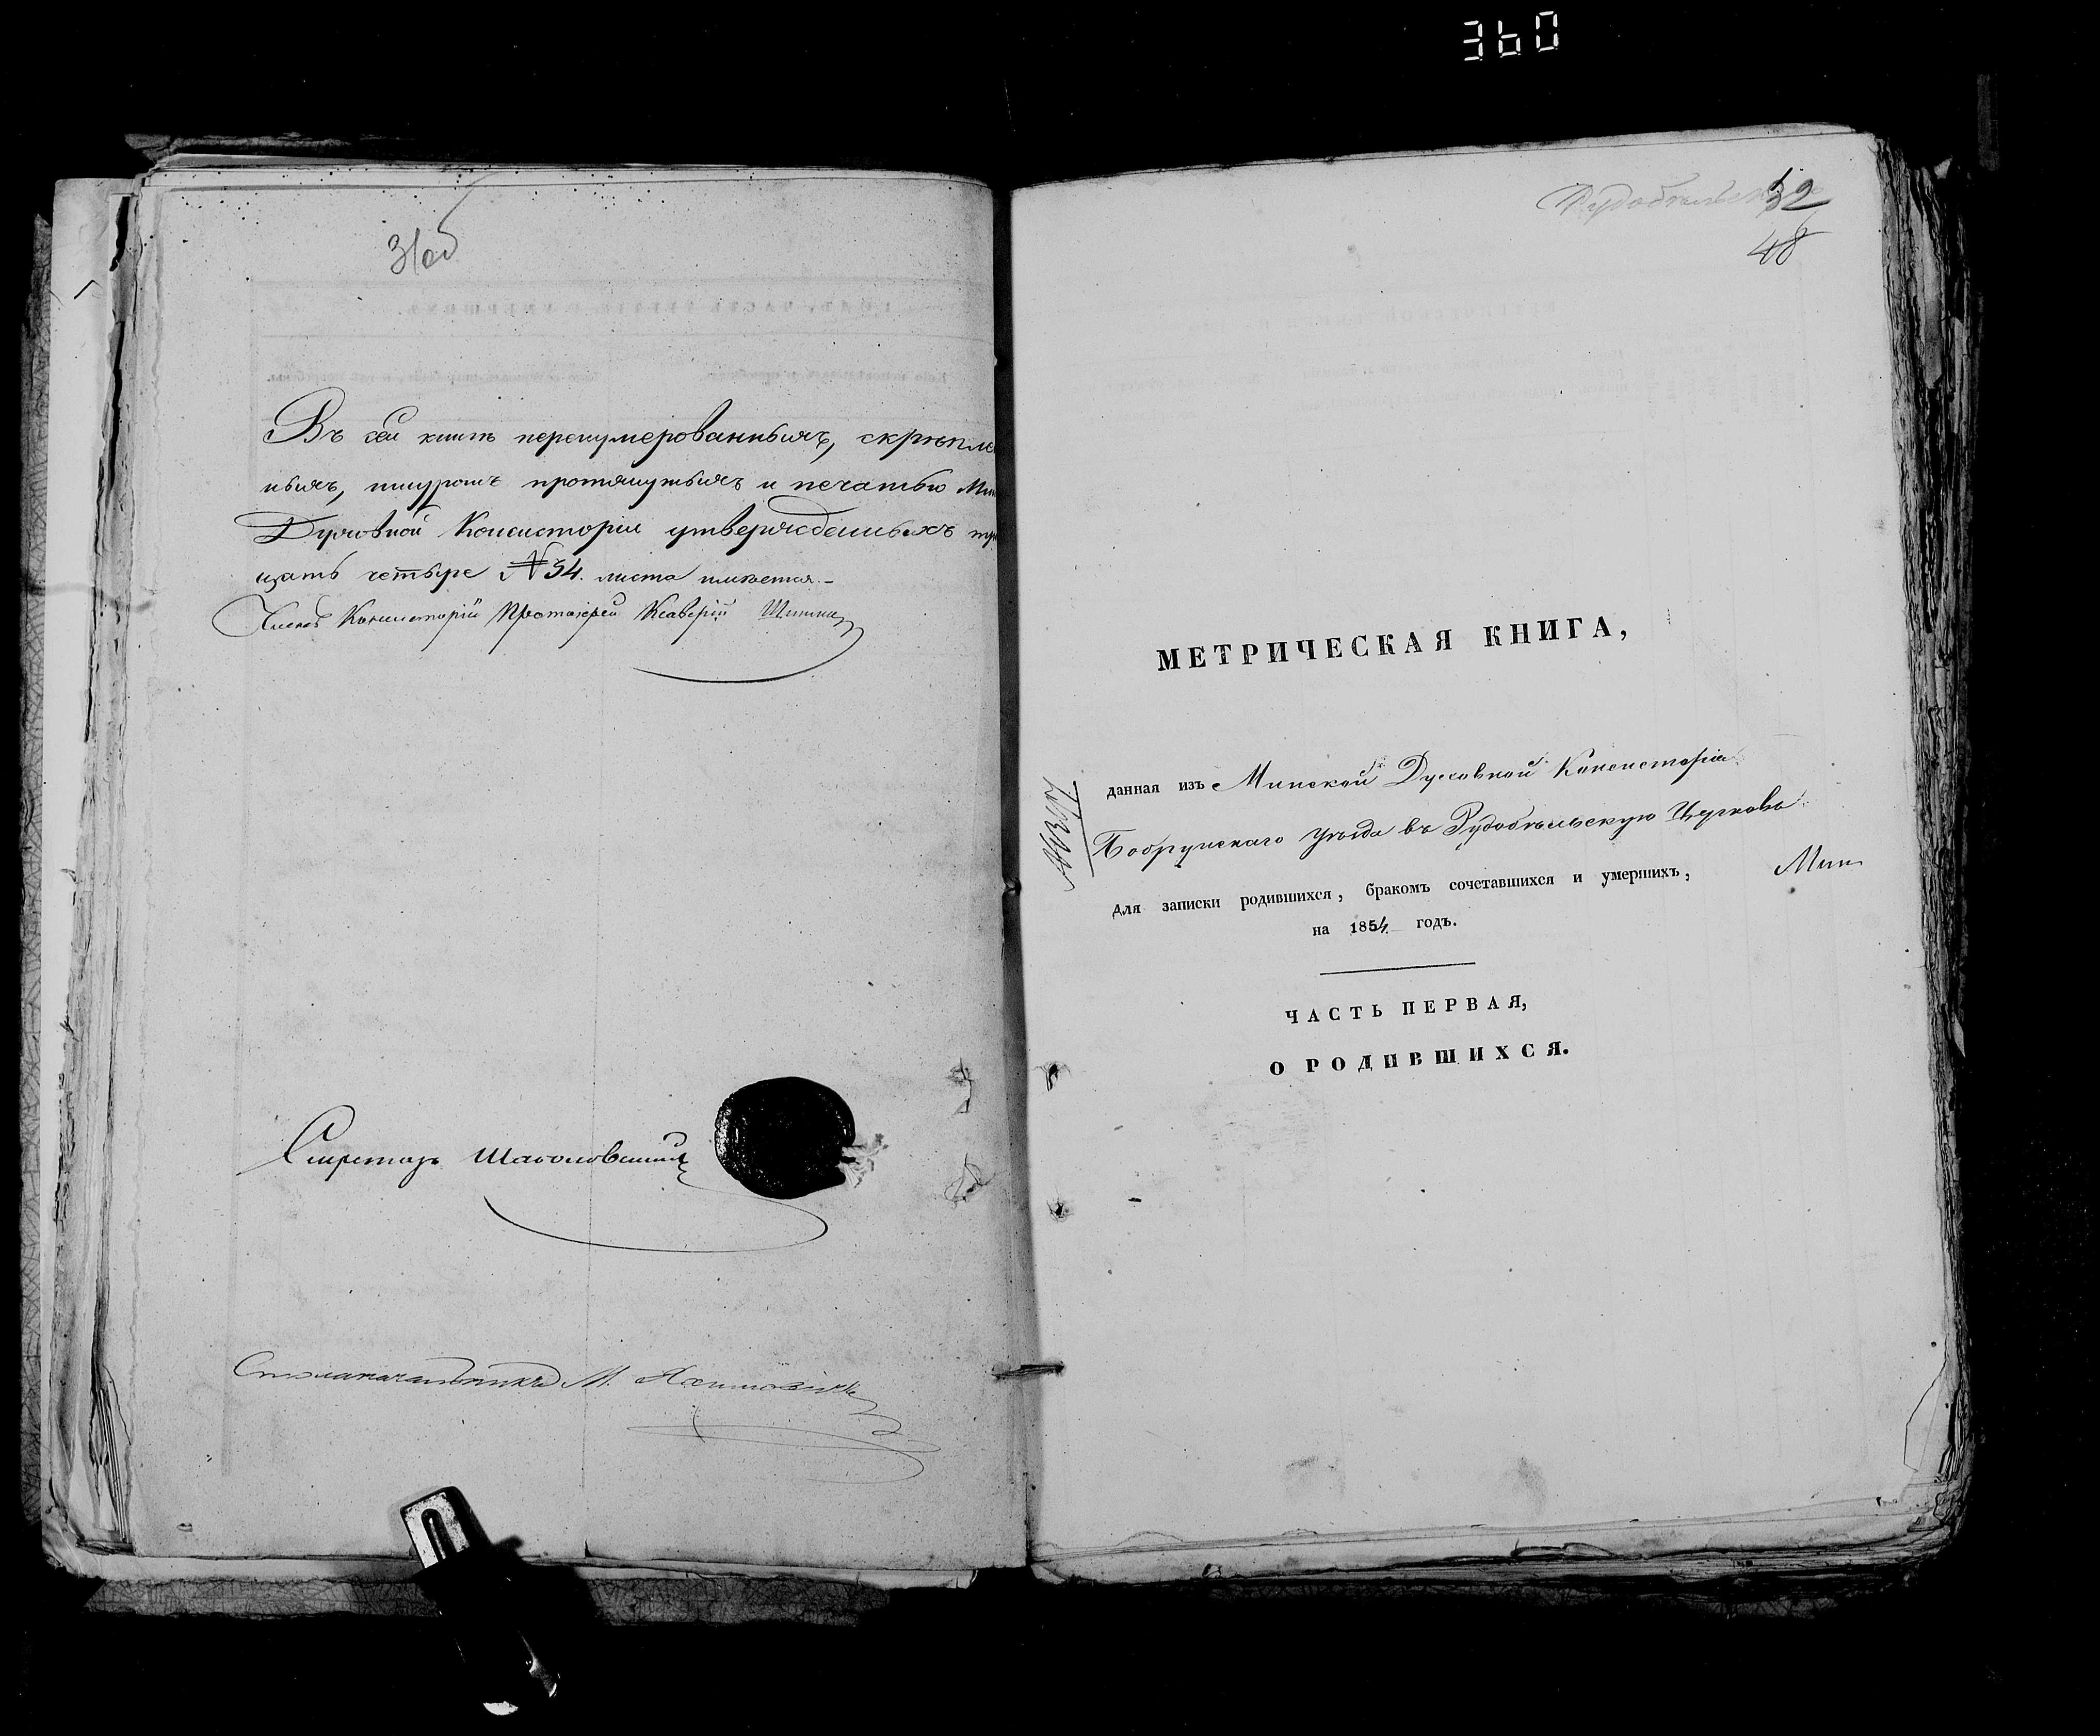 360
31об
Въ сей книгѣ перенумерованныхъ, скрѣплен
ныхъ, шнуромъ протянутыхъ и печатью Мин
Духовной Консисторіи утвержденныхъ три
цать четыре № 34. листа имѣется.
Членъ Консисторіи Протоіерей Ксаверій
Секретарь
Столоначальникъ М.
Рудобѣльск
32
48
МЕТРИЧЕСКАЯ КНИГА,
данная изъ Минской Духовной Консисторіи
Бобруйскаго уѣзда въ Рудобѣльскую Церковь
для записки родившихся, бракомъ сочетавшихся и умершихъ,
Мин
на 1854 годъ.
ЧАСТЬ ПЕРВАЯ,
О РОДИВШИХСЯ.